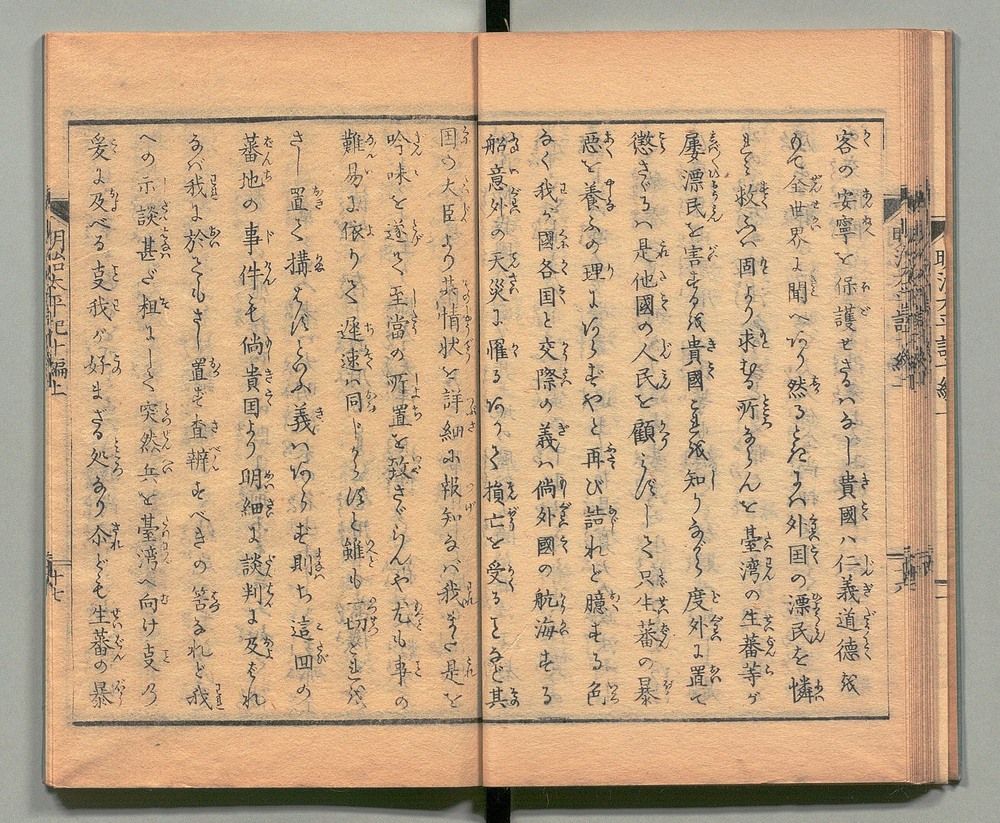 客の安寧を保護せざるハなし貴國ハ仁義道德を
もて全世界に聞へあり然るときハ外国の漂民を憐
ミ救ふハ固より求むる所ならんを臺湾の生蕃等が
屢漂民を害するを貴國これを知りながら度外に置て
懲さゞるハ是他國の人民を顧ミずして只生蕃の暴
悪を養ふの理にあらずやと再び詰れど臆する色
なく我が國各国と交際の義ハ倘外國の航海する
船意外の天災に罹るありて損亡を受ることなど其
国の大臣より其情状を詳細に報知なバ我また是を
吟味を遂て至當の所置を致さゞらんや尤も事の
難易に依りて遅速ハ同じからずと雖も一切これを
さし置て搆はずといふ義ハあらず則ち這回の
蕃地の事件も倘貴国より明細に談判に及ばれ
なバ我に於てもさし置ず査辦すべきの筈なれど我
への示談甚だ粗にして突然兵を臺湾へ向け支乃
爰に及べる支我が好まざる処なり尒ども生蕃の暴
明治太平記十編上
十七